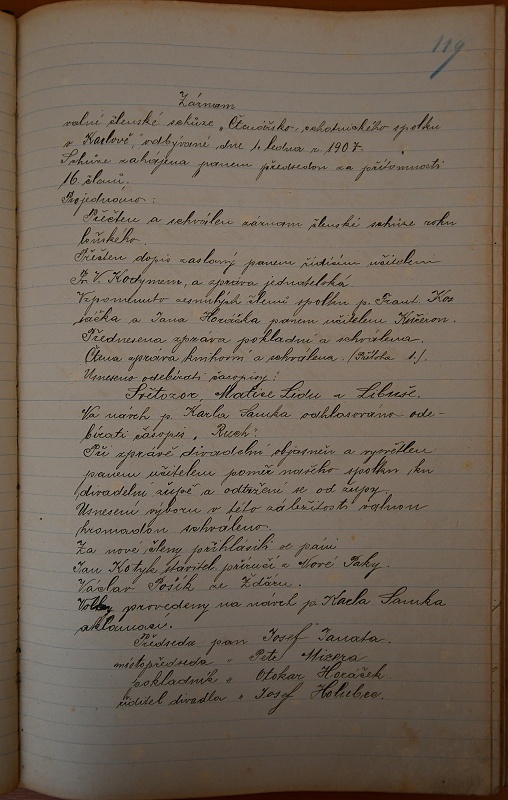 119
Záznam
valné členské schůze "Čtenářsko-ochotnického spolku
v Karlově", odbývané dne 1. ledna r. 1907.
Schůze zahájena panem předsedou za přítomnosti
16. členů.
Projednáno:
Přečten a schválen záznam členské schůze roku
loňského.
Přečten dopis zaslaný panem řídícím učitelem
Fr. V. Kodymem, a zpráva jednatelská.
Vzpomenuto zesnulých členů spolku p. Frant.
a Jana Horáčka panem učitelem
Přednesena zpráva pokladní a schválena.
Čtena zpráva knihovní a schválena. /Příloha 1./.
Usneseno odebírati časopisy:
Světozor, Matice Lidu a Libuše.
Na návrh p. Karla Samka odhlasováno ode-
bírati časopis "Ruch".
Při zprávě divadelní objasněn a vysvětlen
panem učitelem poměr našeho spolku ku
divadelní župě a odtržení se od župy.
Usnesení výboru v této záležitosti valnou
hromadou schváleno.
Za nové členy přihlásili se páni
Jan Kotyk stavitel příručí z Nové Paky.
Václav Pošík ze Ždáru.
Volby provedeny na návrh p. Karla Samka
aklamací.
Předseda pan Josef Janata.
místopředseda " Petr Mizera
pokladník " Otokar Horáček
ředitel divadla " Josef Holubec.